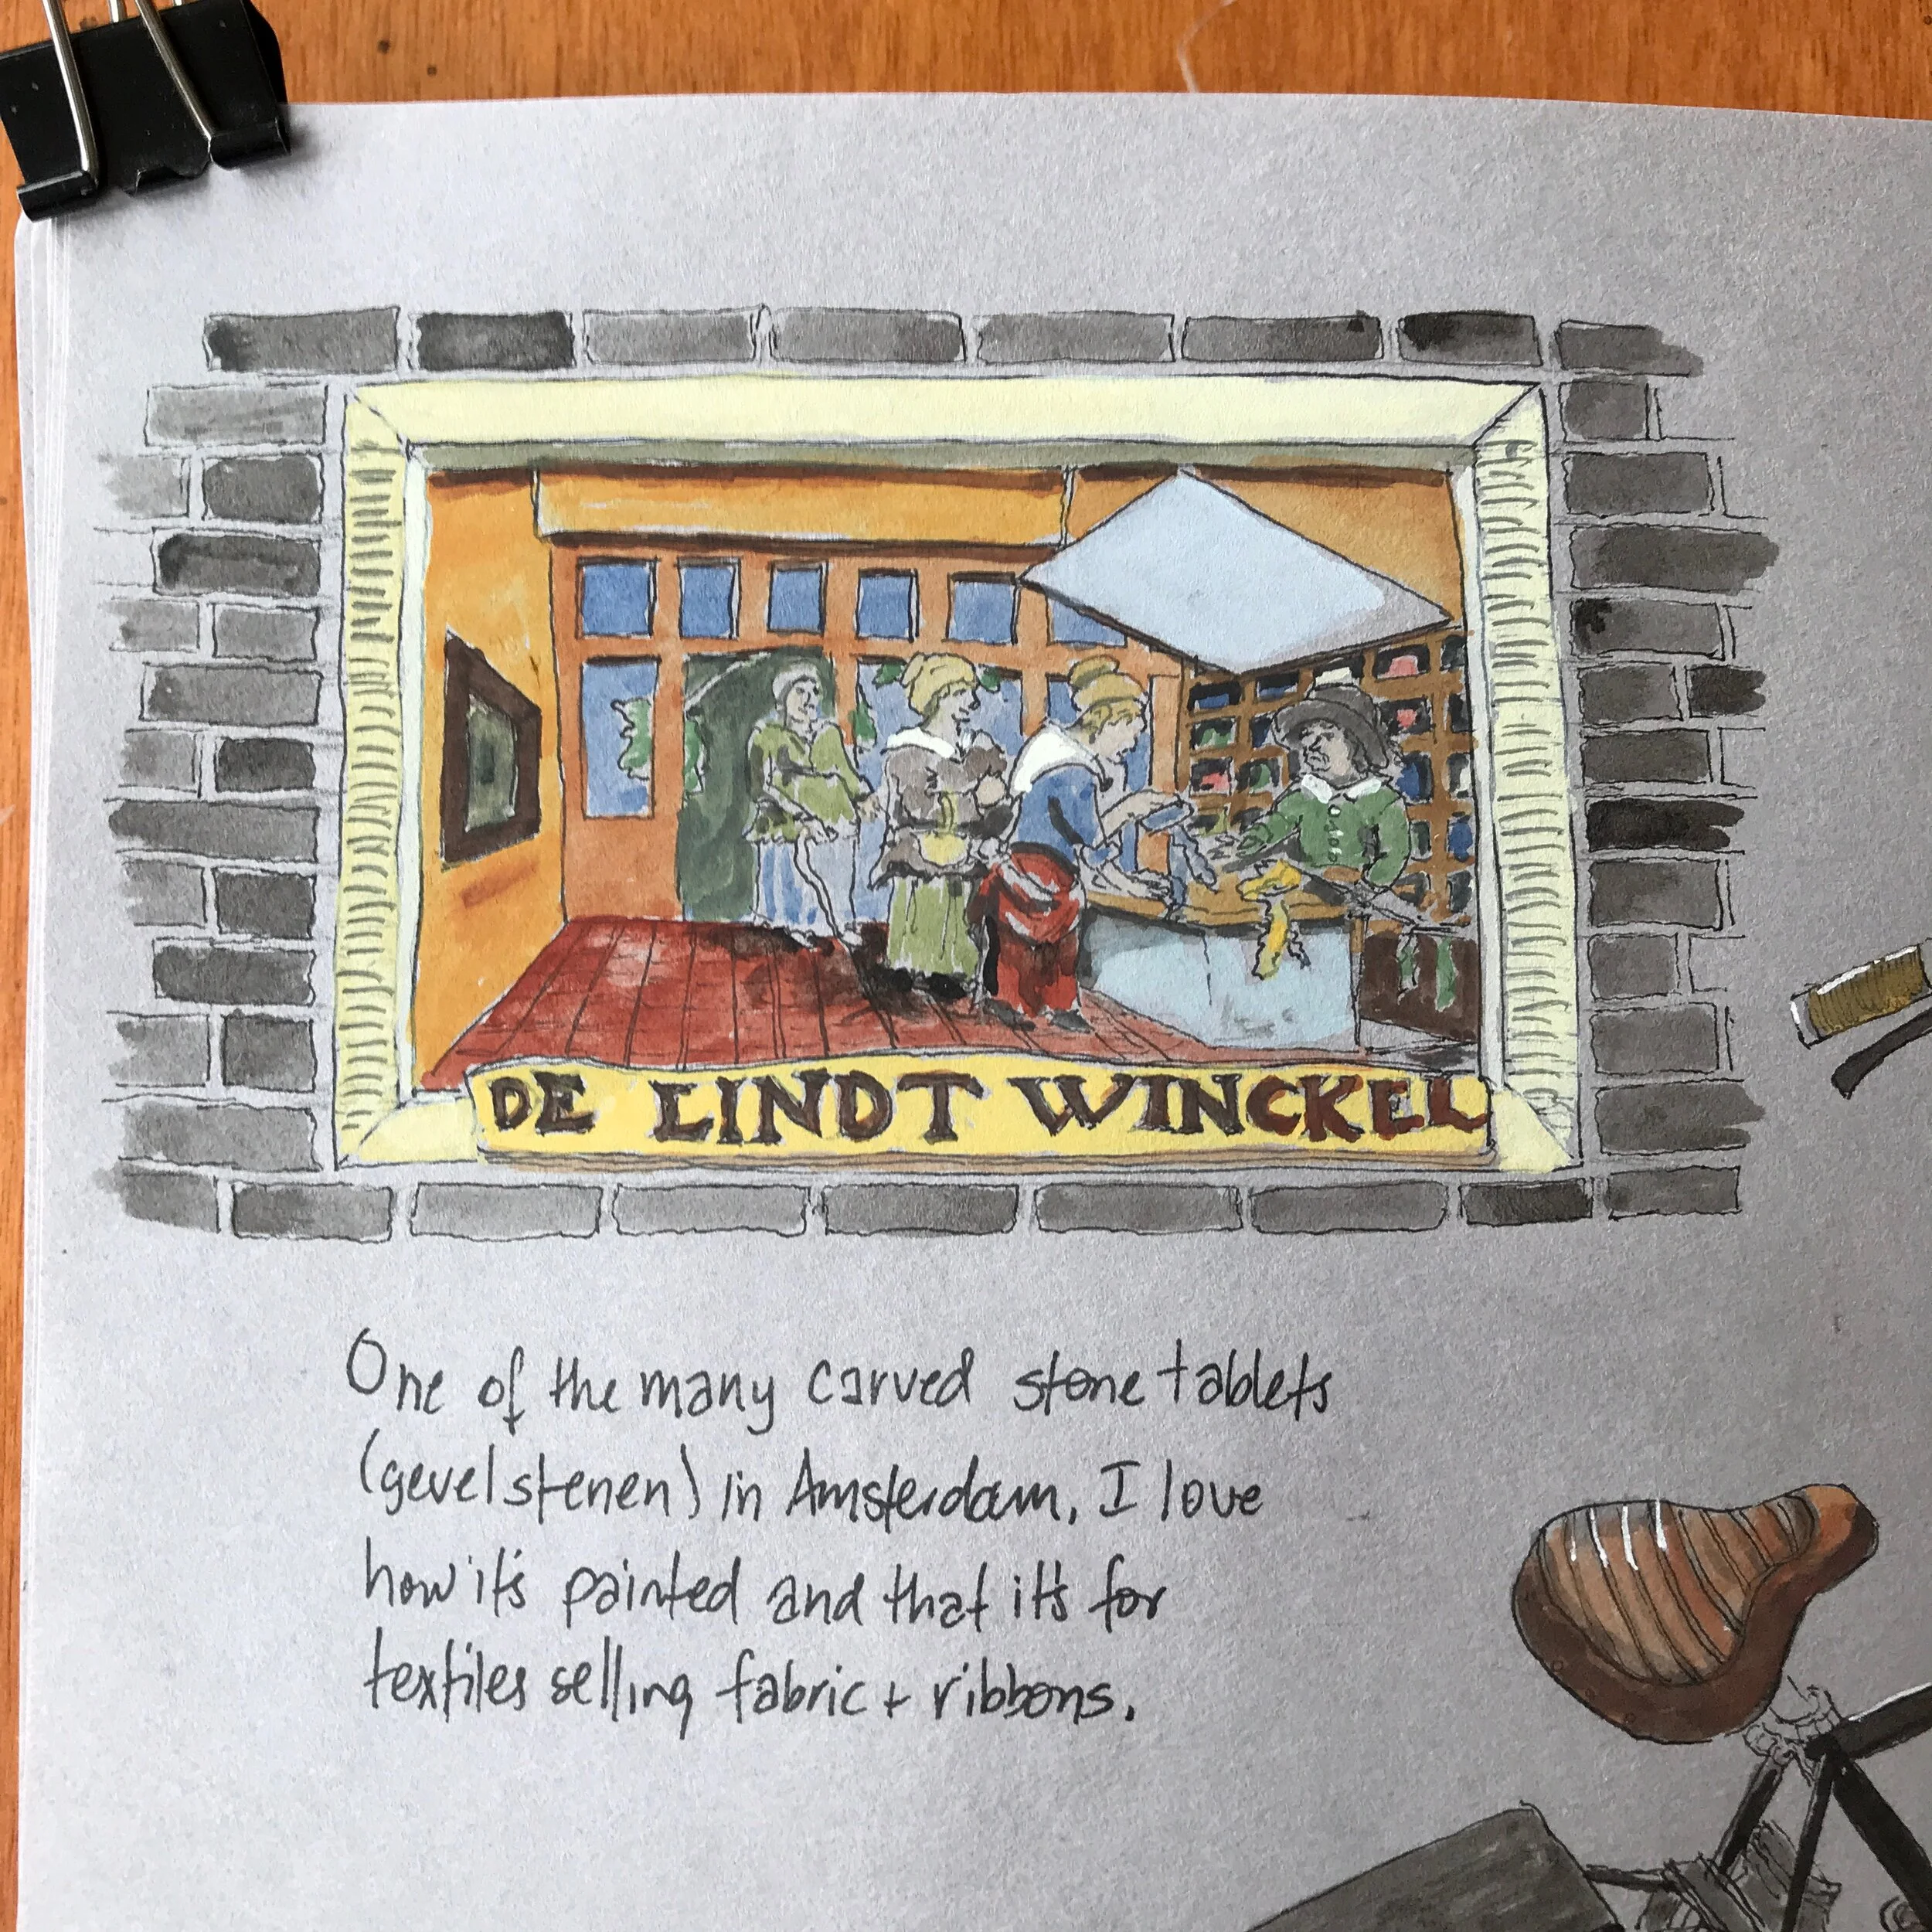 DE LINDT WINCKEL
One of the many carved stone tablets
(gevelstenen) in Amsterdam, I love
how it's painted and that it's for
textiles selling fabric + ribbons.